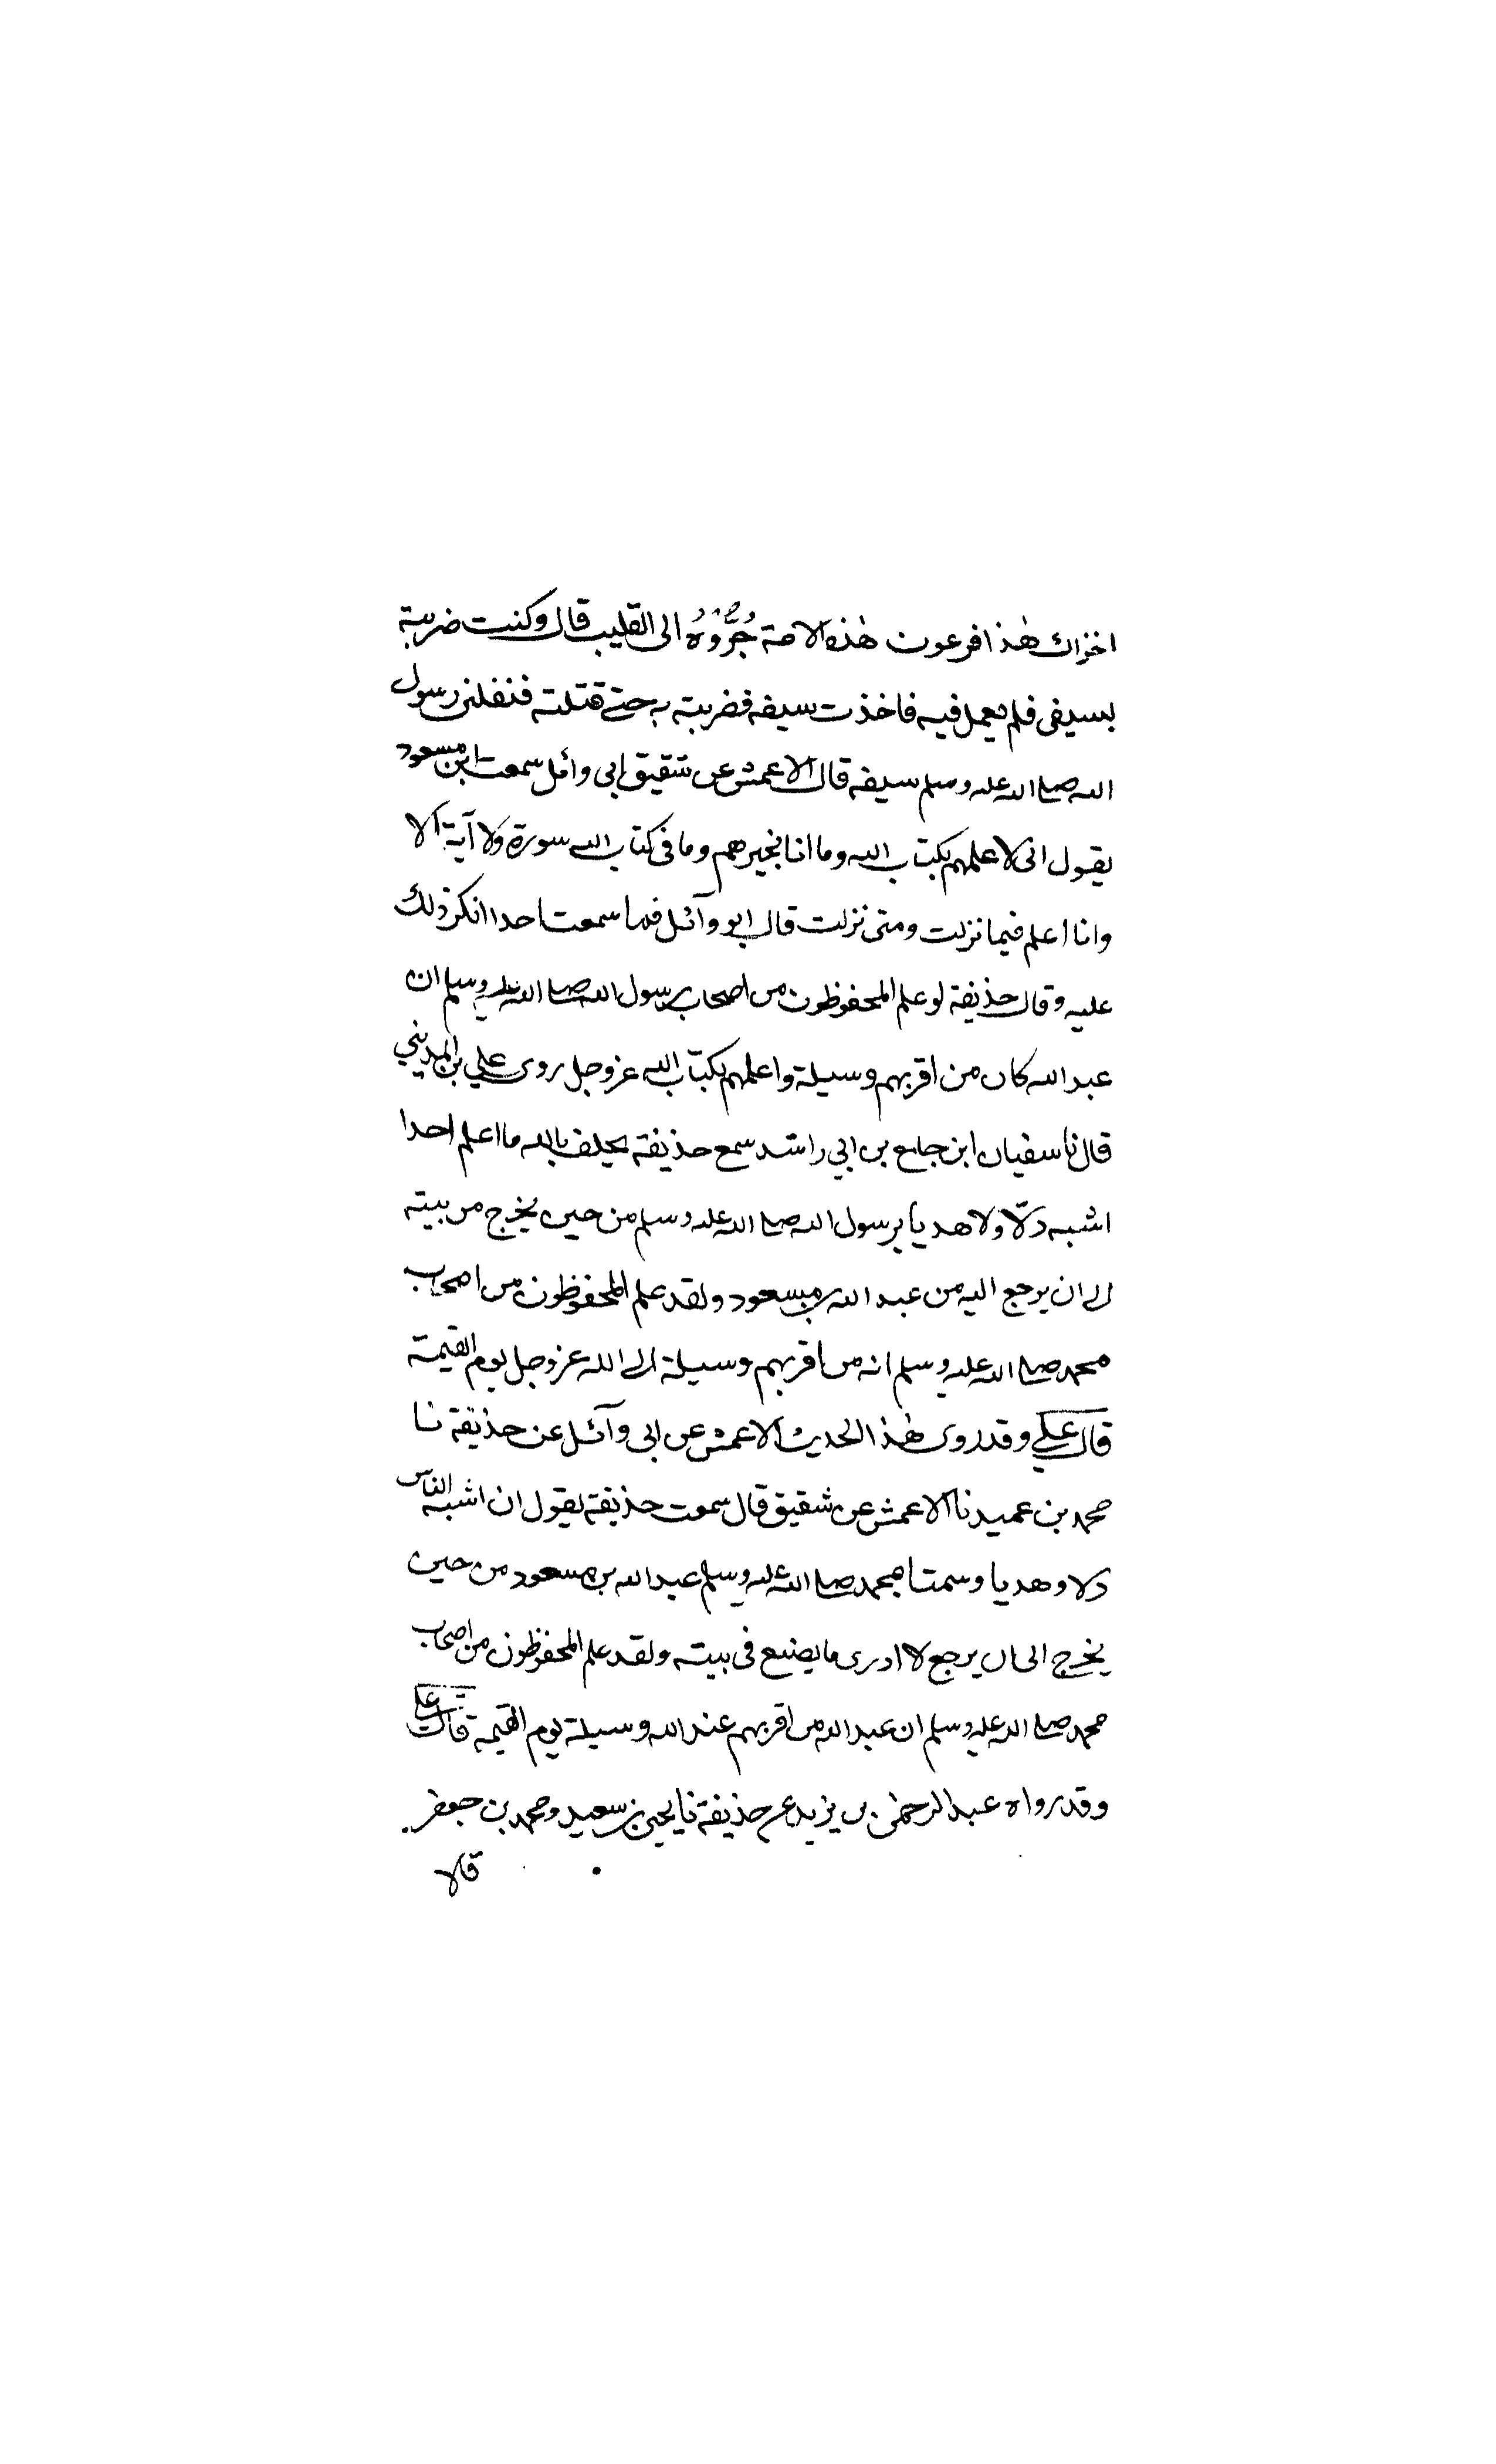 اخزاك هٰذا فرعون هٰذه الامة جُرُّوْهُ الى القليب قال وكنت ضربته
بسيفى فلم يعمل فيه فاخذت سيفه فضربته به حتے قتلته فنفلنى رسول
الله صلے الله عليه وسلم سيفه قال الاعمش عن شقيق ابى وائل سمعت ابن مسعود
يقول انى لاعلمهم بكتاب الله وما انا بخيرهم وما فى كتاب الله سورة ولا آية الا
وانا اعلم فيما نزلت ومتى نزلت قال ابو وآئل فما سمعت احدا انكر ذلك
عليه وقال حذيفة لو علم المحفوظون من اصحاب رسول الله صلے الله عليه وسلم ان
عبد الله كان من اقربهم وسيلة واعلمهم بكتاب الله عز وجل روى علي بن المديني
قال نا سفيان ابن جامع بن ابي راشد سمع حذيفة يحلف بالله ما اعلم احدا
اشبه دلّا ولا هديا برسول الله صلے الله عليه وسلم من حين يخرج من بيته
الے ان يرجع اليه من عبد الله بن مسعود ولقد علم المحفوظون من اصحاب
محمد صلے الله عليه وسلم انه من اقربهم وسيلة الے الله عز وجل يوم القيمة
قال علے وقد روى هٰذا الحديث الاعمش عن ابى وآئل عن حذيفة نا
محمد بن عميد نا الاعمش عن شقيق قال سمعت حذيفة يقول ان اشبه الناس
دلا وهديا وسمتا بمحمد صلے الله عليه وسلم عبد الله بن مسعود من حين
يخرج الى ان يرجع لا ادرى ما يصنع فى بيته ولقد علم المحفوظون من اصحاب
محمد صلے الله عليه وسلم ان عبد الله من اقربهم عند الله وسيلة يوم القيمة قال علے
وقد رواه عبد الرحمٰن بن يزيد عن حذيفة نا يحيى بن سعيد ومحمد بن جعفر
قالا